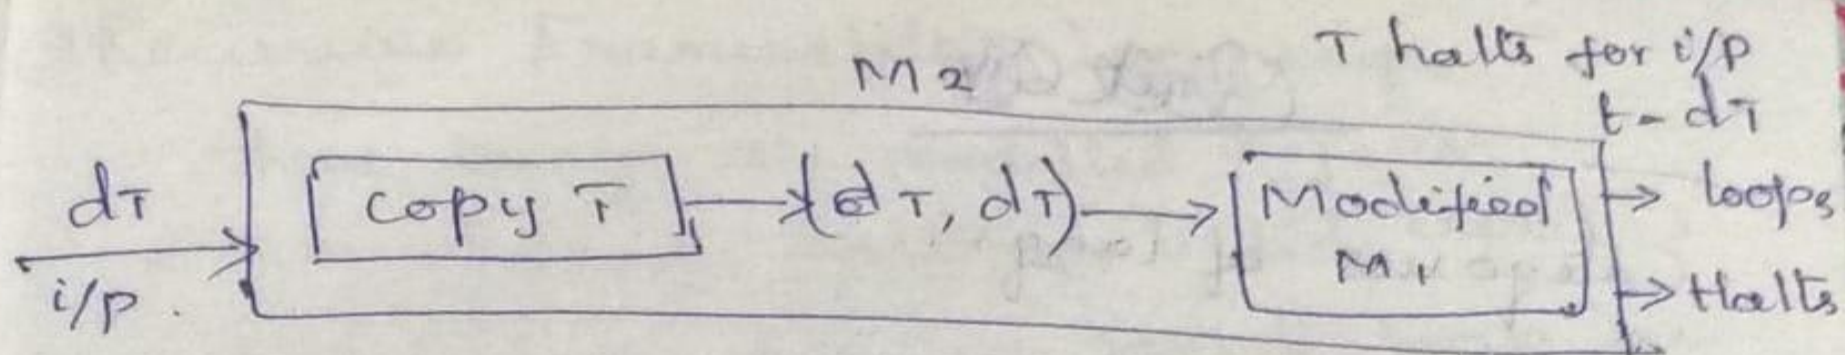 T halts for i/p
M2
t - dT
dT
copy T
(dT, dT)
Modified
M1
loops
i/p.
Halts